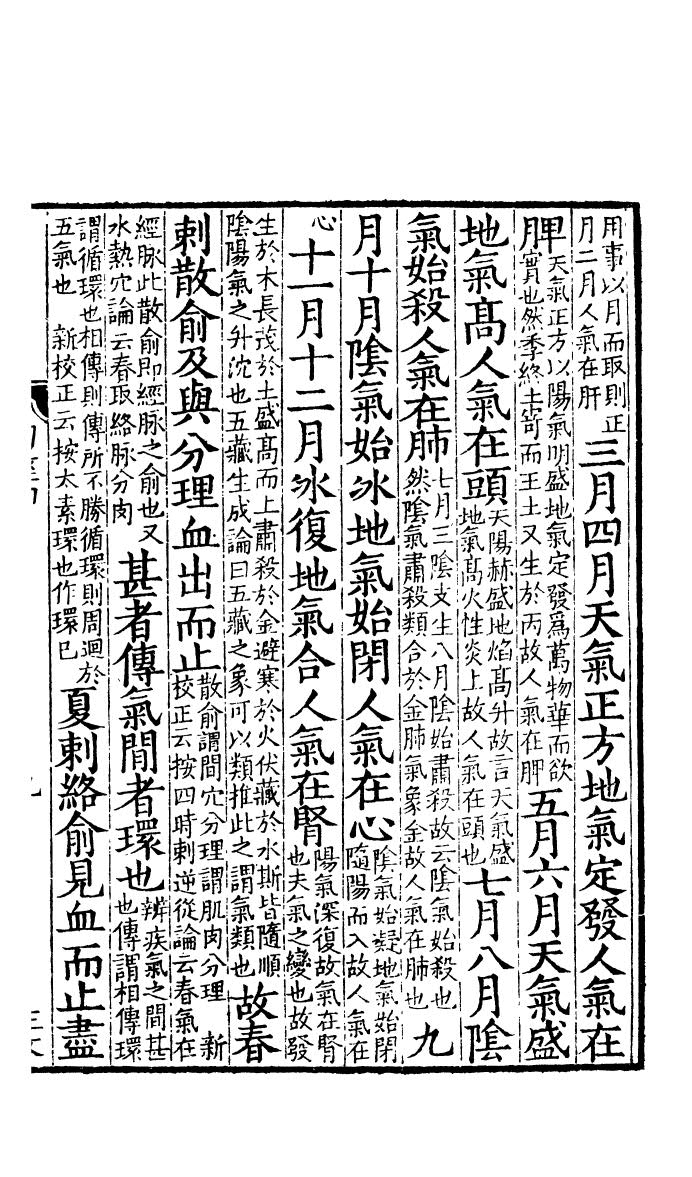 用事以月而取則正
月二月人氣在肝
三月四月天氣正方地氣定發人氣在
脾
天氣正方以陽氣明盛地氣定發爲萬物華而欲
實也然季終土寄而王土又生於丙故人氣在脾
五月六月天氣盛
地氣高人氣在頭
天陽赫盛地焰高升故言天氣盛
地氣高火性炎上故人氣在頭也
七月八月陰
氣始殺人氣在肺
七月三陰支生八月陰始肅殺故云陰氣始殺也
然陰氣肅殺類合於金肺氣象金故人氣在肺也
九
月十月陰氣始冰地氣始閉人氣在心
陰氣始凝地氣始閉
隨陽而入故人氣在
心
十一月十二月冰復地氣合人氣在腎
陽氣深復故氣在腎
也夫氣之變也故發
生於木長茂於土盛高而上肅殺於金避寒於火伏藏於水斯皆隨順
陰陽氣之升沈也五藏生成論曰五藏之象可以類推此之謂氣類也
故春
刺散俞及與分理血出而止
散俞謂間穴分理謂肌肉分理 新
校正云按四時刺逆從論云春氣在
經脉此散俞即經脉之俞也又
水熱穴論云春取絡脉分肉
甚者傳氣閒者環也
辨疾氣之間甚
也傳謂相傳環
謂循環也相傳則傳所不勝循環則周迴於
五氣也 新校正云按太素環也作環已
夏刺絡俞見血而止盡